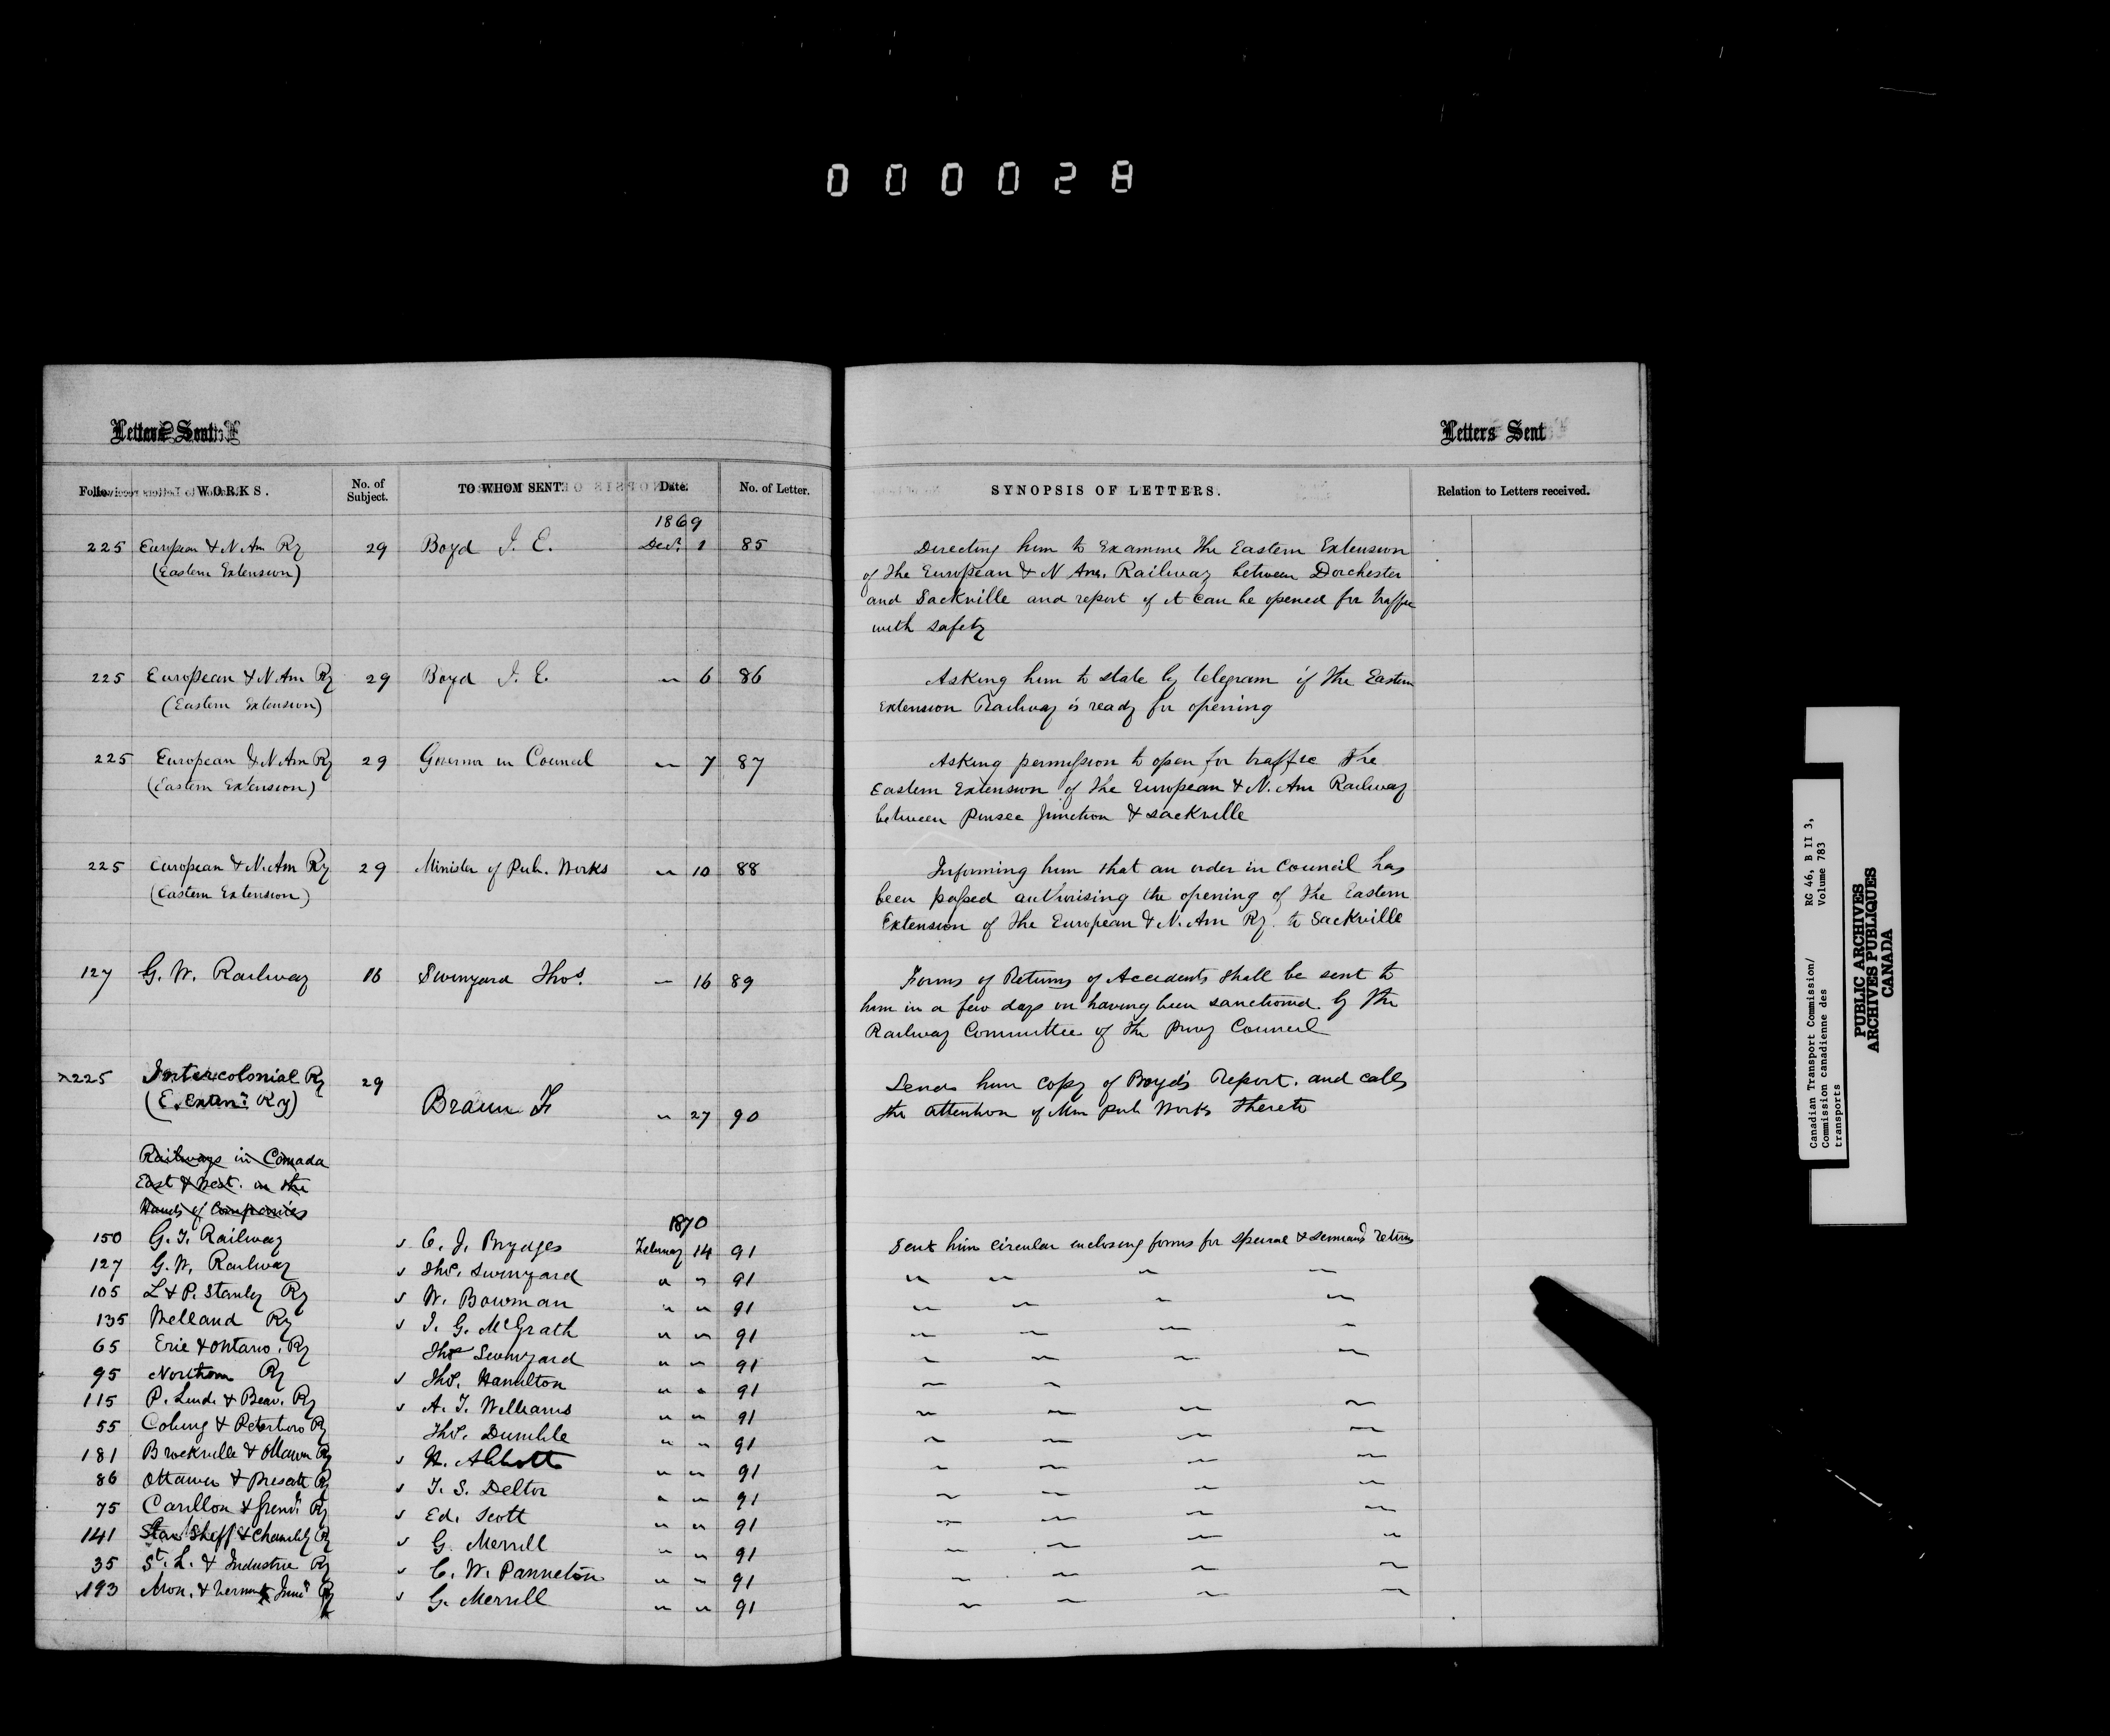 000028
Letters Sent
Letters Sent
Folio. WORKS. No. of Subject. TO WHOM SENT. Date. No. of Letter. SYNOPSIS OF LETTERS. Relation to Letters received.
1869
225 European & N. Am Ry 29 Boyd J. E. Decr. 1 85 Directing him to Examine the Eastern Extension
(Eastern Extension) of the European & N Am. Railway between Dorchester
and Sackville and report if it can be opened for traffic
with safety
225 European & N Am Ry 29 Boyd J. E. " 6 86 Asking him to state by telegram if the Eastern
(Eastern Extension) Extension Railway is ready for opening
225 European & N. Am Ry 29 Governor in Council " 7 87 Asking permission to open for traffic the
(Eastern Extension) Eastern Extension of the European & N. Am Railway
between Junction & Sackville
225 European & N. Am Ry 29 Minister of Pub. Works " 10 88 Informing him that an order in Council has
(Eastern Extension) been passed authorising the opening of the Eastern
Extension of the European & N. Am Ry. to Sackville
127 G. W. Railway 16 Swinyard Thos. " 16 89 Forms of Returns of Accidents shall be sent to
him in a few days on having been sanctioned by the
Railway Committee of the Privy Council
225 Intercolonial Ry 29 Braun F " 27 90 Sends him copy of Boyd's Report. and calls
(E. Extenn. Ry) the attention of Min Pub Works thereto
Railways in Canada
East & West. in the
Hands of Companies
1870
150 G. T. Railway C. J. Brydges February 14 91 Sent him circular enclosing forms for special & returns
127 G. W. Railway Thos. Swinyard " " 91 " " " "
105 L & P. Stanley Ry W. Bowman " " 91 " " " "
135 Welland Ry J. G. McGrath " " 91 " " " "
65 Erie & Ontario. Ry Thos Swinyard " " 91 " " " "
95 Northern Ry Thos. Hamilton " " 91 " "
115 P. Lind. & Beav. Ry A. T. Williams " " 91 " " " "
55 Cobourg & Peterboro Ry Thos. Dumble " " 91 " " " "
181 Brockville & Ottawa Ry H. Abbott " " 91 " " " "
86 Ottawa & Prescott Ry T. S. Detlor " " 91 " " " "
75 Carillon & Grenv. Ry Ed. Scott " " 91 " " " "
141 Stan Sheff & Chambly Ry G. Merrill " " 91 " " " "
35 St. L. & Industrie Ry C. W. Panneton " " 91 " " " "
193 Mon. & Vermont Junc Ry G. Merrill " " 91 " " " "
Canadian Transport Commission/
Commission canadienne des
transports
RG 46, B II 3,
Volume 783
PUBLIC ARCHIVES
ARCHIVES PUBLIQUES
CANADA